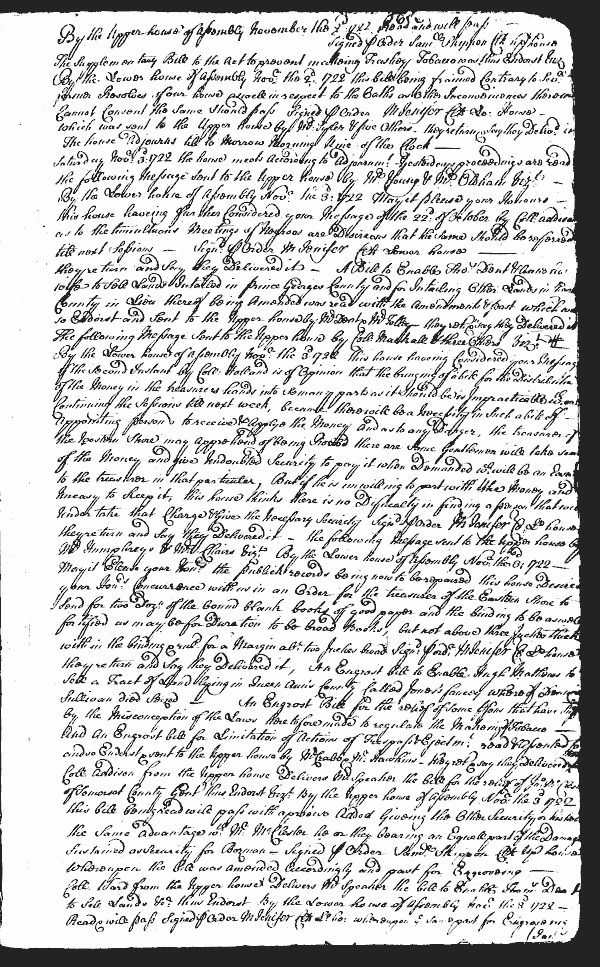 By the Upper house of Assembly November the 2d 1722 Read and will pass
Signed p Order Saml Skippon Clk up house
The Supplementary Bill to the Act to prevent making Trashey Tobaccos was thus Endorst
By the Lower house of Assembly Novr the 2d 1722 this bill being framed Contrary to
former Resolves of our house as well in respect to the Oaths as Other Inconveniences therein
Cannot Consent the Same Should pass Signed p Order M Jenifer Clk Lo: House
which was sent to the Upper house by Mr Tyler & five Others. they return say they Delivd it
The house adjourns till to Morrow Morning Nine of the Clock
Saturday Novr 3 1722 the house meets According to Adjournmt Yesterdays proceedings are read
the following Message Sent to the Upper house by Mr Young & Mr Oldham Vizt
By the Lower house of Assembly Novr the 3: 1722 May it please your Honours
this house having further Considered your Message of the 22d of October by Coll Addison
as to the tumultuous Meetings of Negroes are Desireous that the same Should be referred
till next Sessions Signd p Order M Jenifer Clk Lower house
they return and Say they Delivered it A Bill to Enable Thos Dent & Anne his
wife to Sell Lands Intailed in Prince Georges County and for Intailing Other Lands in
County in Lieu thereof being Amended was read with the Amendments & past which was
so Endorst and Sent to the Upper house by Mr Dent & Mr they return say they Delivered it
The following Message Sent to the Upper house by Coll Mackall & three Others Vizt
By the Lower house of Assembly Novr the 3 1722 This house having Considered your Message
of the Second Instant by Coll Holland is of Opinion that the bringing of a bill for the Distribution
of the Money in the treasurers hands into so many parts as it Should be is impracticable without
Continuing the Sessions till next week, because there will be a necessity in Such a bill of
appointing persons to receive & Apply the Money And as to any Danger, the treasurer of
the Western Shore may Apprehend of being Robbed there are Some Gentlemen will take some
of the Money and give Undoubted Security to pay it when Demanded wch will be an Ease
to the treasurer in that particular, But if he is unwilling to part with the Money and
Uneasy to Keep it, this house thinks there is no Difficulty in finding a person that will
Under take that Charge & Give the Necessary Security Signd p Order M Jenifer Clk Lo house
they return and Say they Delivered it the following Message sent to the Upper house by
Mr Humphreys & Mr Claire Vizt By the Lower house of Assembly Novr the 3: 1722
May it Please your Honrs the Publick records being now to be repaired this house Desires
your Honrs Concurrence with us in an Order for the treasurer of the Eastern Shore to
Send for two Dozn of the bound blank books of good paper and the binding to be as well
fortified as may be for Duration to be broad Books, but not above three Inches thick
with in the binding & rul'd for a Margin abt two Inches broad Signd p Ordr M Jenifer Clk Lo house
they return and Say they Delivered it, An Engrost bill to Enable Hugh Mathews to
Sell a Tract of Land lying in Queen Ann's County Called Jones's fancey whereof
Sullivan died Seized An Engrost Bill for the relief of some p sons that have
by the Misconception of the Laws heretofore made to regulate the Making of Tobacco
And An Engrost bill for Limitation of Actions of Trespass & Ejectmt read & Assented to
and so Endorst & sent to the Upper house by Mr Crabb & Mr Hawkins they ret & say they Delivered it
Coll Addison from the Upper house Delivers Mr Speaker the bill for the relief of
of Somerset County Gent thus Endorst Vizt By the Upper house of Assembly Novr the 3 1722
this bill being read will pass with a proviso Added Giveing the Other Security or his heirs
the Same Advantage as Mr McClester he or they bearing an Equall part of the Damage
Sustained as Security for Bozman Signed p Order Saml Skippon Clk Up house
Whereupon the bill was amended Accordingly and past for Engrossing
Coll Ward from the Upper house Delivers Mr Speaker the bill to Enable
to Sell Lands &c thus Endorst By the Lower house of Assembly Novr the 3 1722
Read & will pass Signed p Order M Jenifer Clk Lo: ho: whereupon past for Engrossing